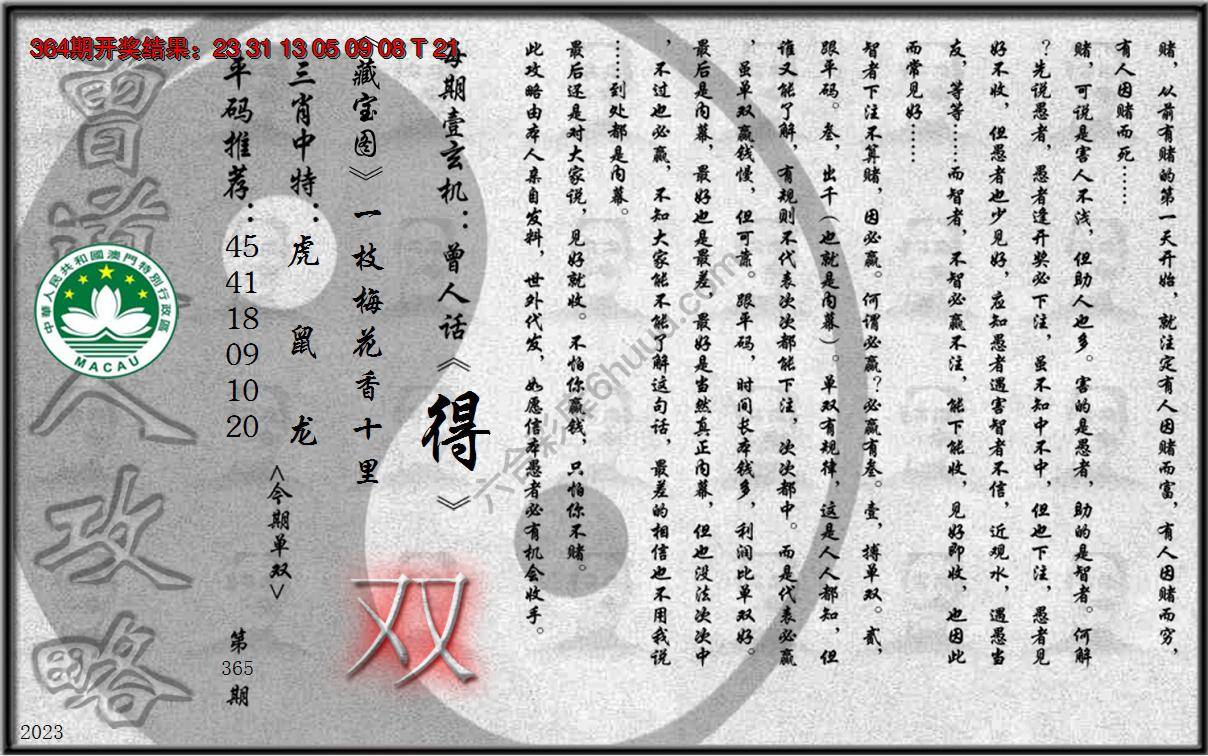 364期开奖结果：23 31 13 05 09 08 T 21
赌，从前有赌的第一天开始，就注定有人因赌而富，有人因赌而穷，
有人因赌而死……
赌，可说是害人不浅，但助人也多。害的是愚者，助的是智者。何解
？先说愚者，愚者逢开奖必下注，虽不知中不中，但也下注，愚者见
好不收，但愚者也少见好，应知愚者遇害智者不信，近观水，遇愚当
友，等等……而智者，不智必赢不注，能下能收，见好即收，也因此
而常见好……
智者下注不算赌，因必赢。何谓必赢？必赢有叁。壹，搏单双。贰，
跟平码。叁，出千（也就是内幕）。单双有规律，这是人人都知，但
谁又能了解，有规则不代表次次都能下注，次次都中。而是代表必赢
，虽单双赢钱慢，但可靠。跟平码，时间长本钱多，利润比单双好。
最后是内幕，最好也是最差，最好是当然真正内幕，但也没法次次中
，不过也必赢，不知大家能不能了解这句话，最差的相信也不用我说
……到处都是内幕。
最后还是对大家说，见好就收。不怕你赢钱，只怕你不赌。
此攻略由本人亲自发料，世外代发，如愿信本愚者必有机会收手。
每期壹玄机：曾人话《得》
《藏宝图》一枝梅花香十里
双
三肖中特：虎 鼠 龙
<今期单双>
平码推荐：45 41 18 09 10 20
第365期
曾道人攻略
中華人民共和國澳門特別行政區
MACAU
六合彩库6huuu.com
2023